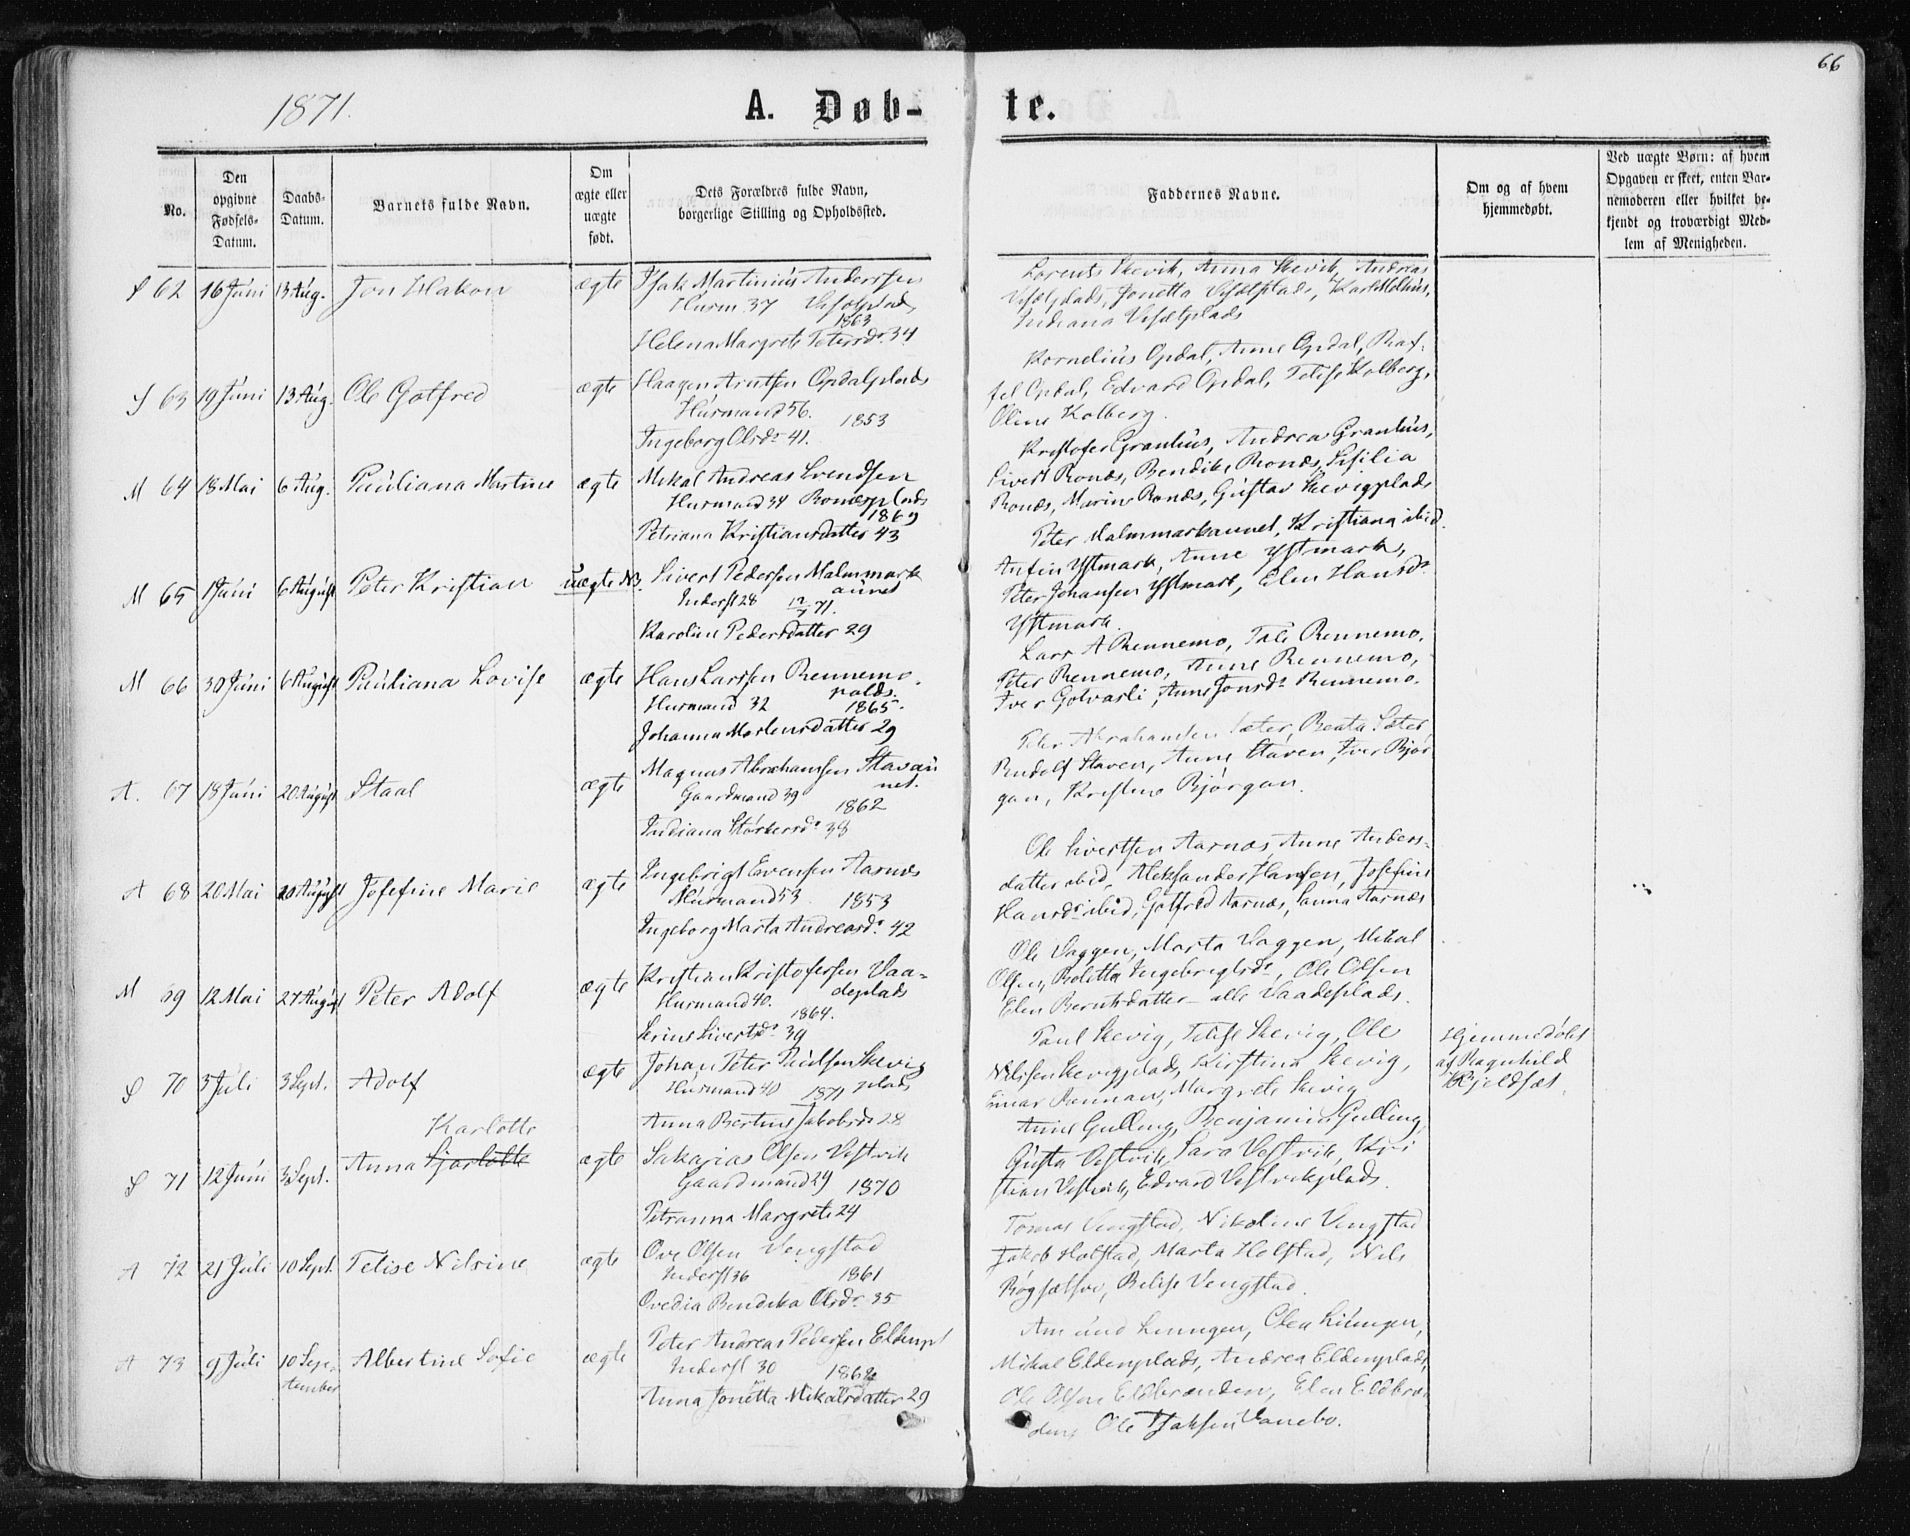 66
1871.
A. Døb-
te.
No.
Den opgivne Fødsels-Datum.
Daabs-Datum.
Barnets fulde Navn.
Om ægte eller uægte født.
Dets Forældres fulde Navn, borgerlige Stilling og Opholdssted.
Faddernes Navne.
Om og af hvem hjemmedøbt.
Ved uægte Børn: af hvem Opgaven er skeet, enten Barnemoderen eller hvilket bekjendt og troværdigt Medlem af Menigheden.
S 62 16 Juni 13 Aug. Jon Hakon ægte Isak Martinius Anderssen
Husm. 37
1863
Helena Margrete Petersdr 34
Lorents Skevik, Anna Skevik, Andreas
Jonetta
Indiana
S 63 19 Juni 13 Aug. Ole Gotfred ægte Haagen Arntsen Opdalplads
Husmand 56.
1853
Ingeborg Olsdr 41.
Kornelius Opdal, Anne Opdal, Raf-
fel Opdal, Edvard Opdal, Kolberg,
Oline Kolberg.
M 64 18 Mai 6 Aug. Pauliana Martine ægte Mikal Andreas Svendsen
Husmand 34 Ronæsplads
1869
Petriana Kristiansdatter 43
Kristofer Granhus, Andrea Granhus,
Sivert Ronæs, Bendike Ronæs,
Ronæs, Marine Ronæs, Gustav Skevigplads
M 65 1 Juni 6 August Peter Kristian uægte NB. Sivert Pedersen Malmmark
aunet
Inderst 28 12/7 71.
Karoline Pedersdatter 29
Peter Malmmarkaunet, Kristiana ibid.
Anfin Ystmark, Anne Ystmark,
Peter Johansen Ystmark, Elen Hansdr
Ystmark.
M 66 30 Juni 6 August Pauliana Lovise ægte Hans Larssen Rennemo-
palds.
Husmand 32 1865.
Johanna Mortensdatter 29
Lars A Rennemo, Tale Rennemo,
Peter Rennemo, Anne Rennemo,
Iver Golvarli, Anne Jonsdr Rennemo.
A. 67 18 Juni 20 August Staal ægte Magnus Abrahamsen Stavau
net.
Gaardmand 39
1862
Indiana Størkersdr 38
Peter Abrahamsen Sæter, Beata Sæter,
Rudolf Staven, Anne Staven, Iver Bjør
gan, Kristine Bjørgan.
A 68 20 Mai 20 August Josefine Marie ægte Ingebrigt Evensen Aarnes
Husmand 53 1853
Ingeborg Marta Andreasdr 42
Ole Sivertsen Aarnæs, Anne Anders-
datter ibid, Aleksander Hansen, Josefine
Hansdr ibid, Gotfred Aarnæs, Sanna Aarnæs
M 69 12 Mai 27 August Peter Adolf ægte Kristian Kristofersen Vaa-
deplads
Husmand 40.
1864.
Serine Sivertsdr 39
Ole Vaggen, Marta Vaggen, Mikal
Olsen, Boletta Ingebrigtsdr, Ole Olsen
Elen Berntsdatter – alle Vaadeplads.
S 70 3 Juli 3 Sept. Adolf ægte Johan Peter Paulsen Skevig
plads
Husmand 40 1871
Anna Bertine Jakobsdr 28
Paul Skevig, Skevig, Ole
Nilssen Skevigplads, Kirstina Skevig,
Einar Rannan, Margrete Skevig
Hjemmedøbt
af Ragnhild
Kjeldsæt.
Karlotte
S 71 12 Juni 3 Sept. Anna Sjarlotte ægte Sakarias Olsen Vestvik
Gaardmand 29 1870
Petranna Margrete 24
Anne Gulling, Benjamin Gulling,
Gusta Vestvik, Sara Vestvik, Kri
stian Vestvik, Edvard Vestvikplads.
A 72 21 Juli 10 Sept. Telise Nilsine ægte Ove Olsen Vengstad
Inderst 36 1861
Ovedia Bendika Olsdr 35
Tomas Vengstad, Nikoline Vengstad
Jakob Holstad, Marta Holstad, Nils
Vengstad.
A 73 9 Juli 10 Sep-
tember Albertine Sofie ægte Peter Andreas Pedersen Eldenpl
Inderst 30
Anna Jonetta Mikalsdatter 29
Olea
Mikal Eldenplads, Andrea Eldenplads,
Ole Olsen Eldbranden, Elen Eldbran
den, Ole Isaksen Vanebo.